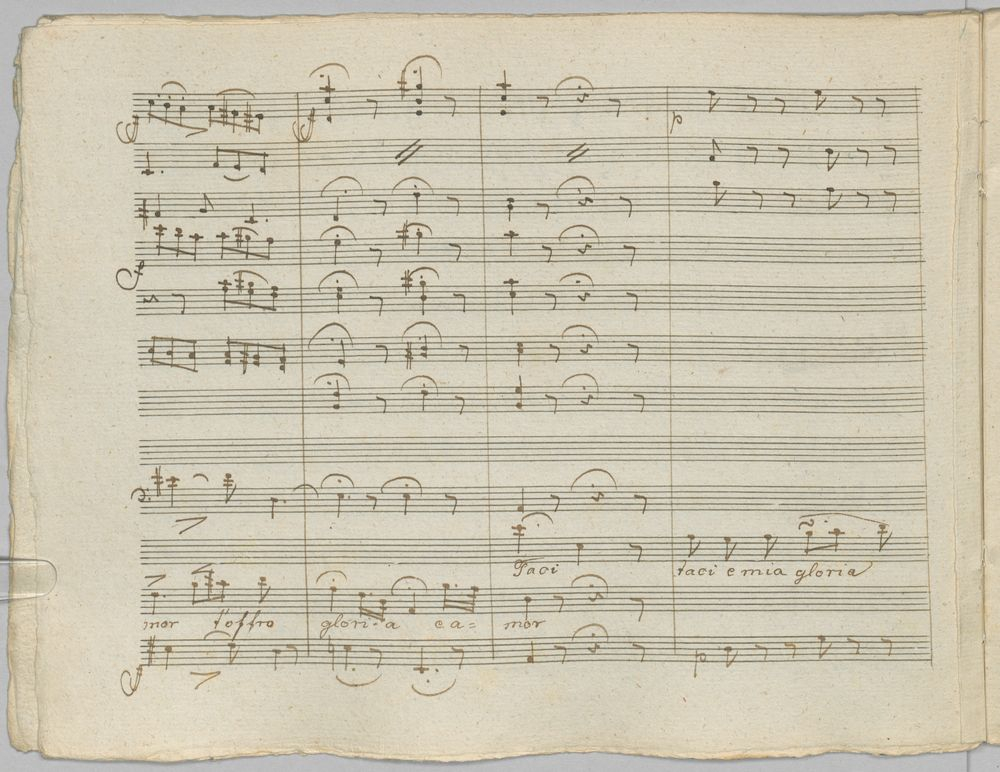 Taci taci e mia gloria
mor t'offro glori-a e a= mor
p
p